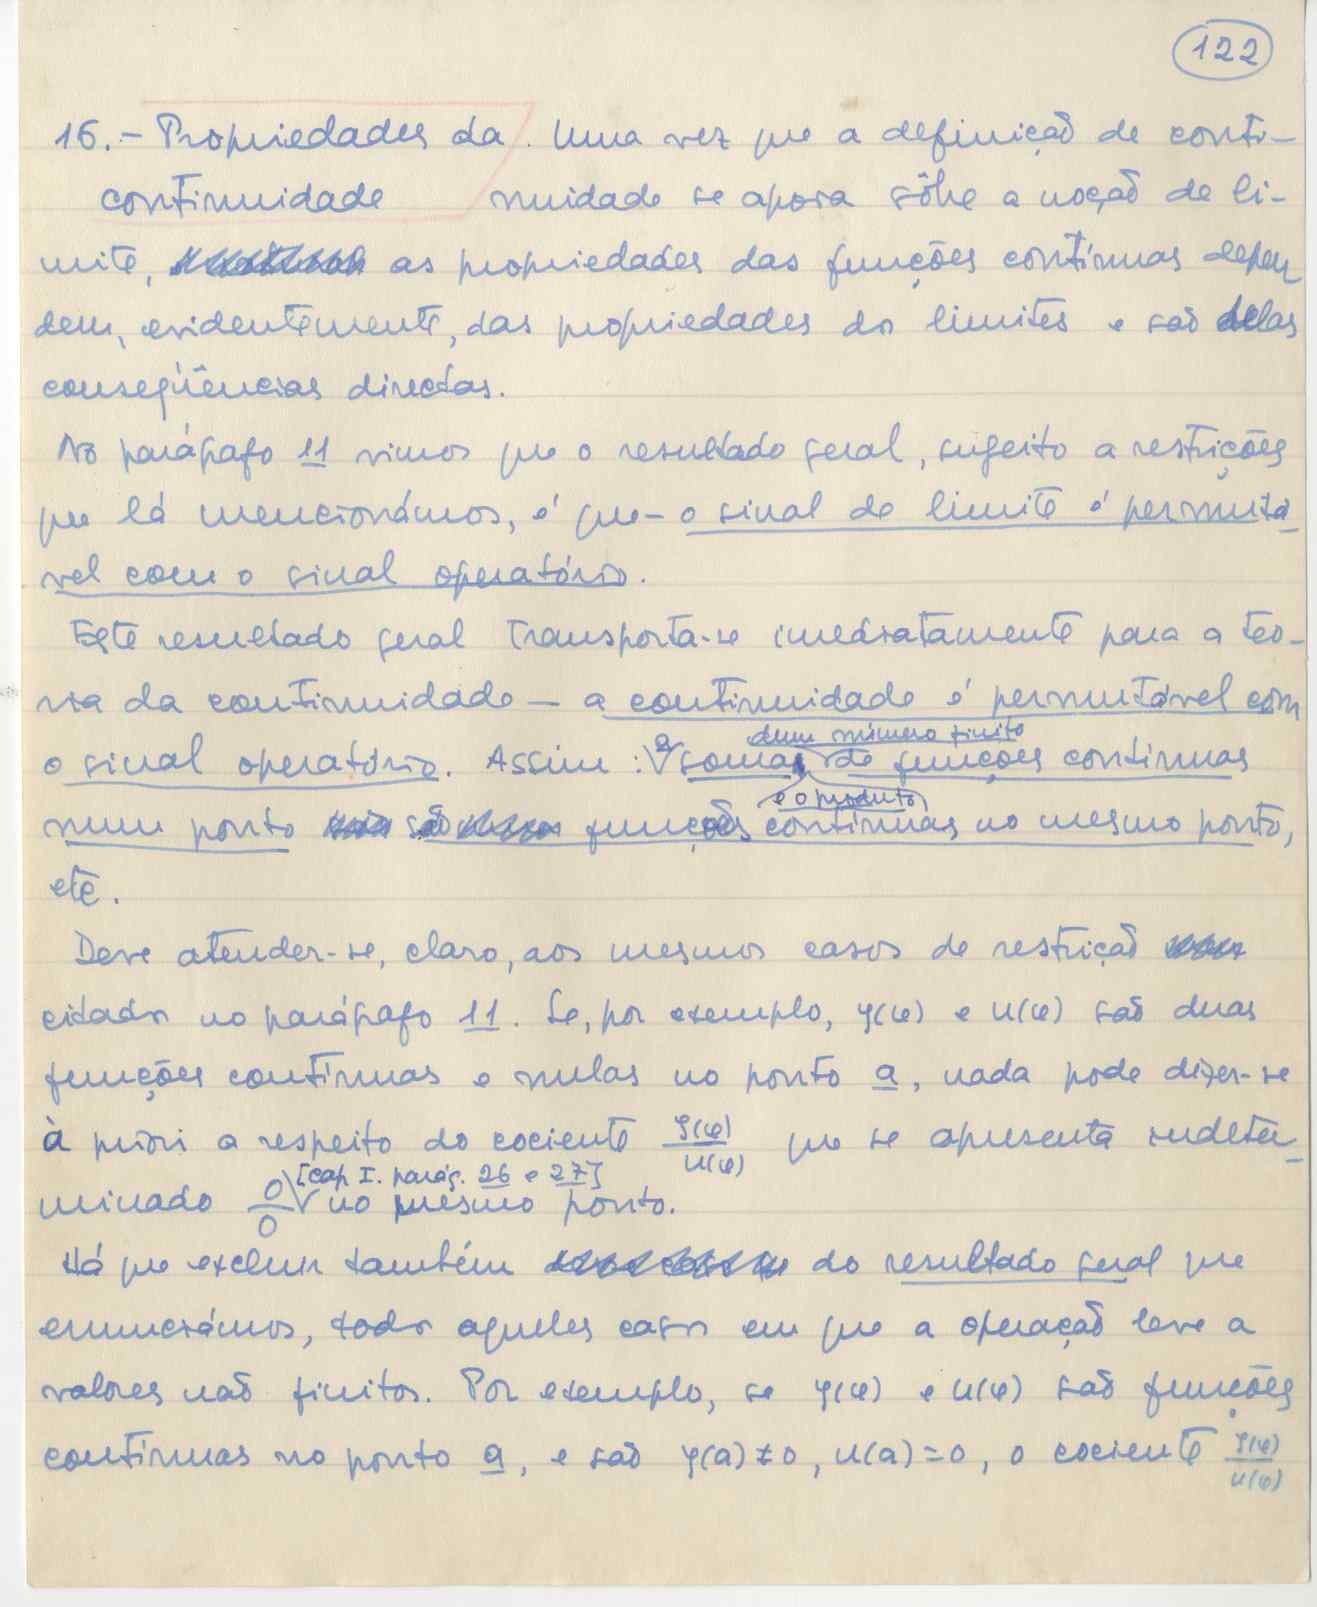 122
16. - Propriedades da continuidade. Uma vez que a definição de conti-
nuidade se apoia sôbre a noção de li-
mite, as propriedades das funções contínuas depen
dem, evidentemente, das propriedades dos limites e são delas
conseqüências directas.
No parágrafo 11 vimos que o resultado geral, sugeito a restrições
que lá mencionámos, é que - o sinal de limite é permutá
vel com o sinal operatório.
Este resultado geral transporta-se imediatamente para a teo-
ria da continuidade - a continuidade é permutável com
dum número finito
o sinal operatório. Assim: a soma de funções contínuas
e o produto
num ponto são funções contínuas no mesmo ponto,
etc.
Deve atender-se, claro, aos mesmos casos de restrição
citados no parágrafo 11. Se, por exemplo, y(x) e u(x) são duas
funções contínuas e nulas no ponto a, nada pode dizer-se
à priori a respeito do cociente y(x)/u(x) que se apresenta indeter_
[cap I. parág. 26 e 27]
minado 0/0 no mesmo ponto.
Há que excluir também do resultado geral que
enunciámos, todos aqueles casos em que a operação leve a
valores não finitos. Por exemplo, se y(x) e u(x) são funções
contínuas no ponto a, e são y(a) ≠ 0, u(a) = 0, o cociente y(x)/u(x)